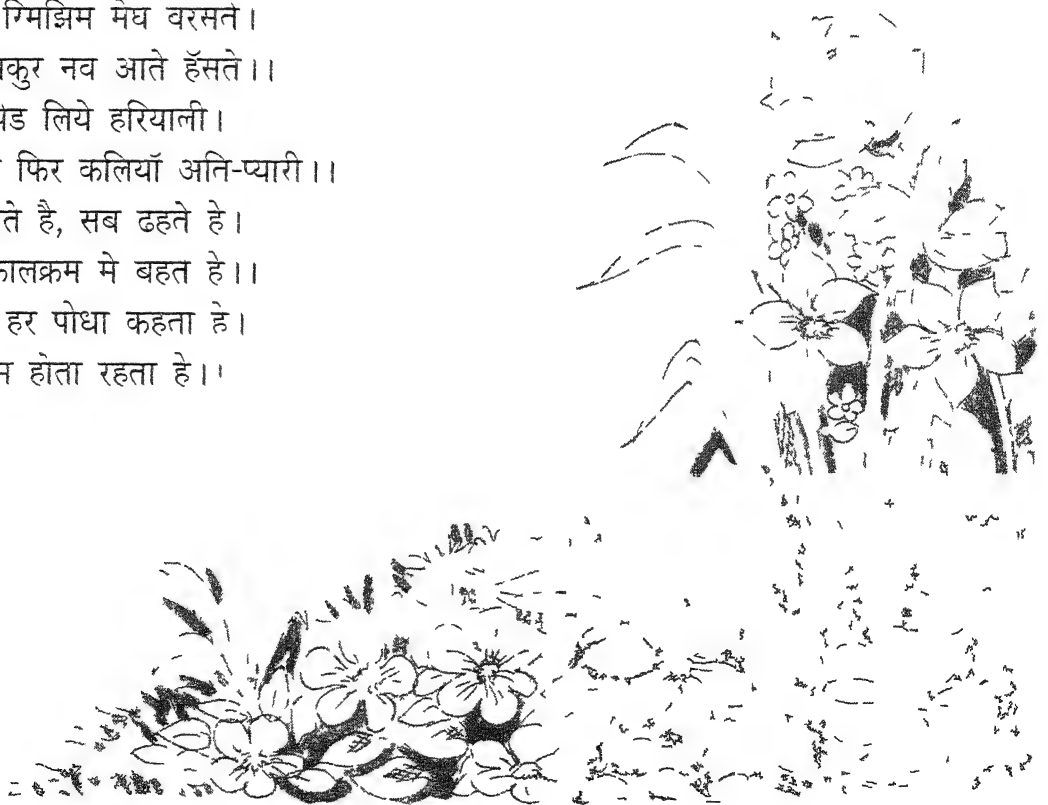 ग्मिझिम मेघ वरसते।
कुर नव आते हॅसते।।
पेड लिये हरियाली।
फिर कलियॉ अति-प्यारी।।
ते है, सब ढहते हे।
कालक्रम मे बहत हे।।
हर पोधा कहता हे।
होता रहता हे।।